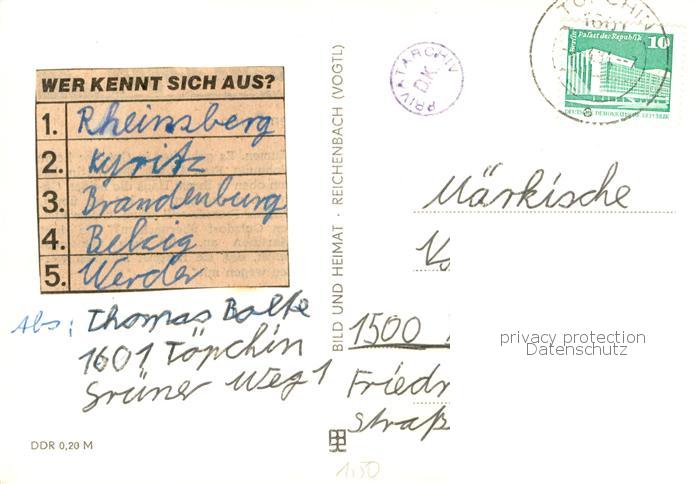 WER KENNT SICH AUS?
1. Rheinsberg
2. Kyritz
3. Brandenburg
4. Belzig
5. Werder
Abs: Thomas Bolte
1601 Töpchin
Grüner Weg 1
DDR 0,20 M
BILD UND HEIMAT · REICHENBACH (VOGTL)
PRIVATARCHIV
D.K.
TÖPCHIN
1601
Berlin, Palast der Republik
10
DEUTSCHE DEMOKRATISCHE REPUBLIK
Märkische
1500
Friedr
Straß
privacy protection
Datenschutz
1,50